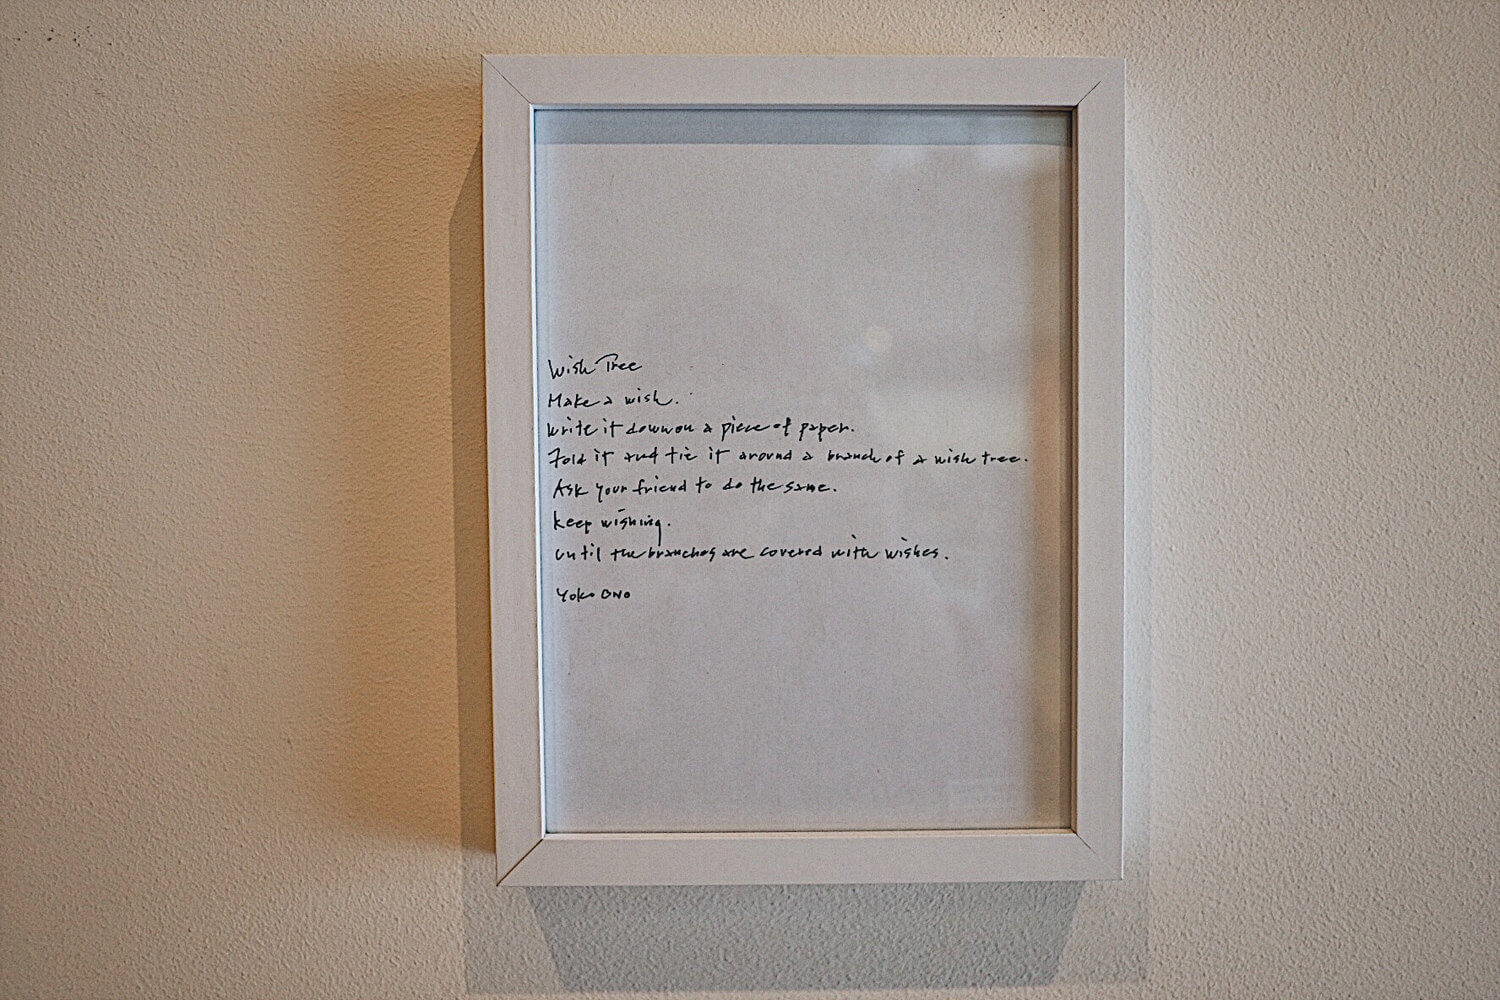 Wish Tree
Make a wish.
Write it down on a piece of paper.
Fold it and tie it around a branch of a wish tree.
Ask your friend to do the same.
Keep wishing.
Until the branches are covered with wishes.
Yoko Ono